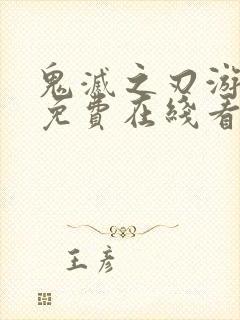 鬼滅之刃游
免費在綫看
王彦